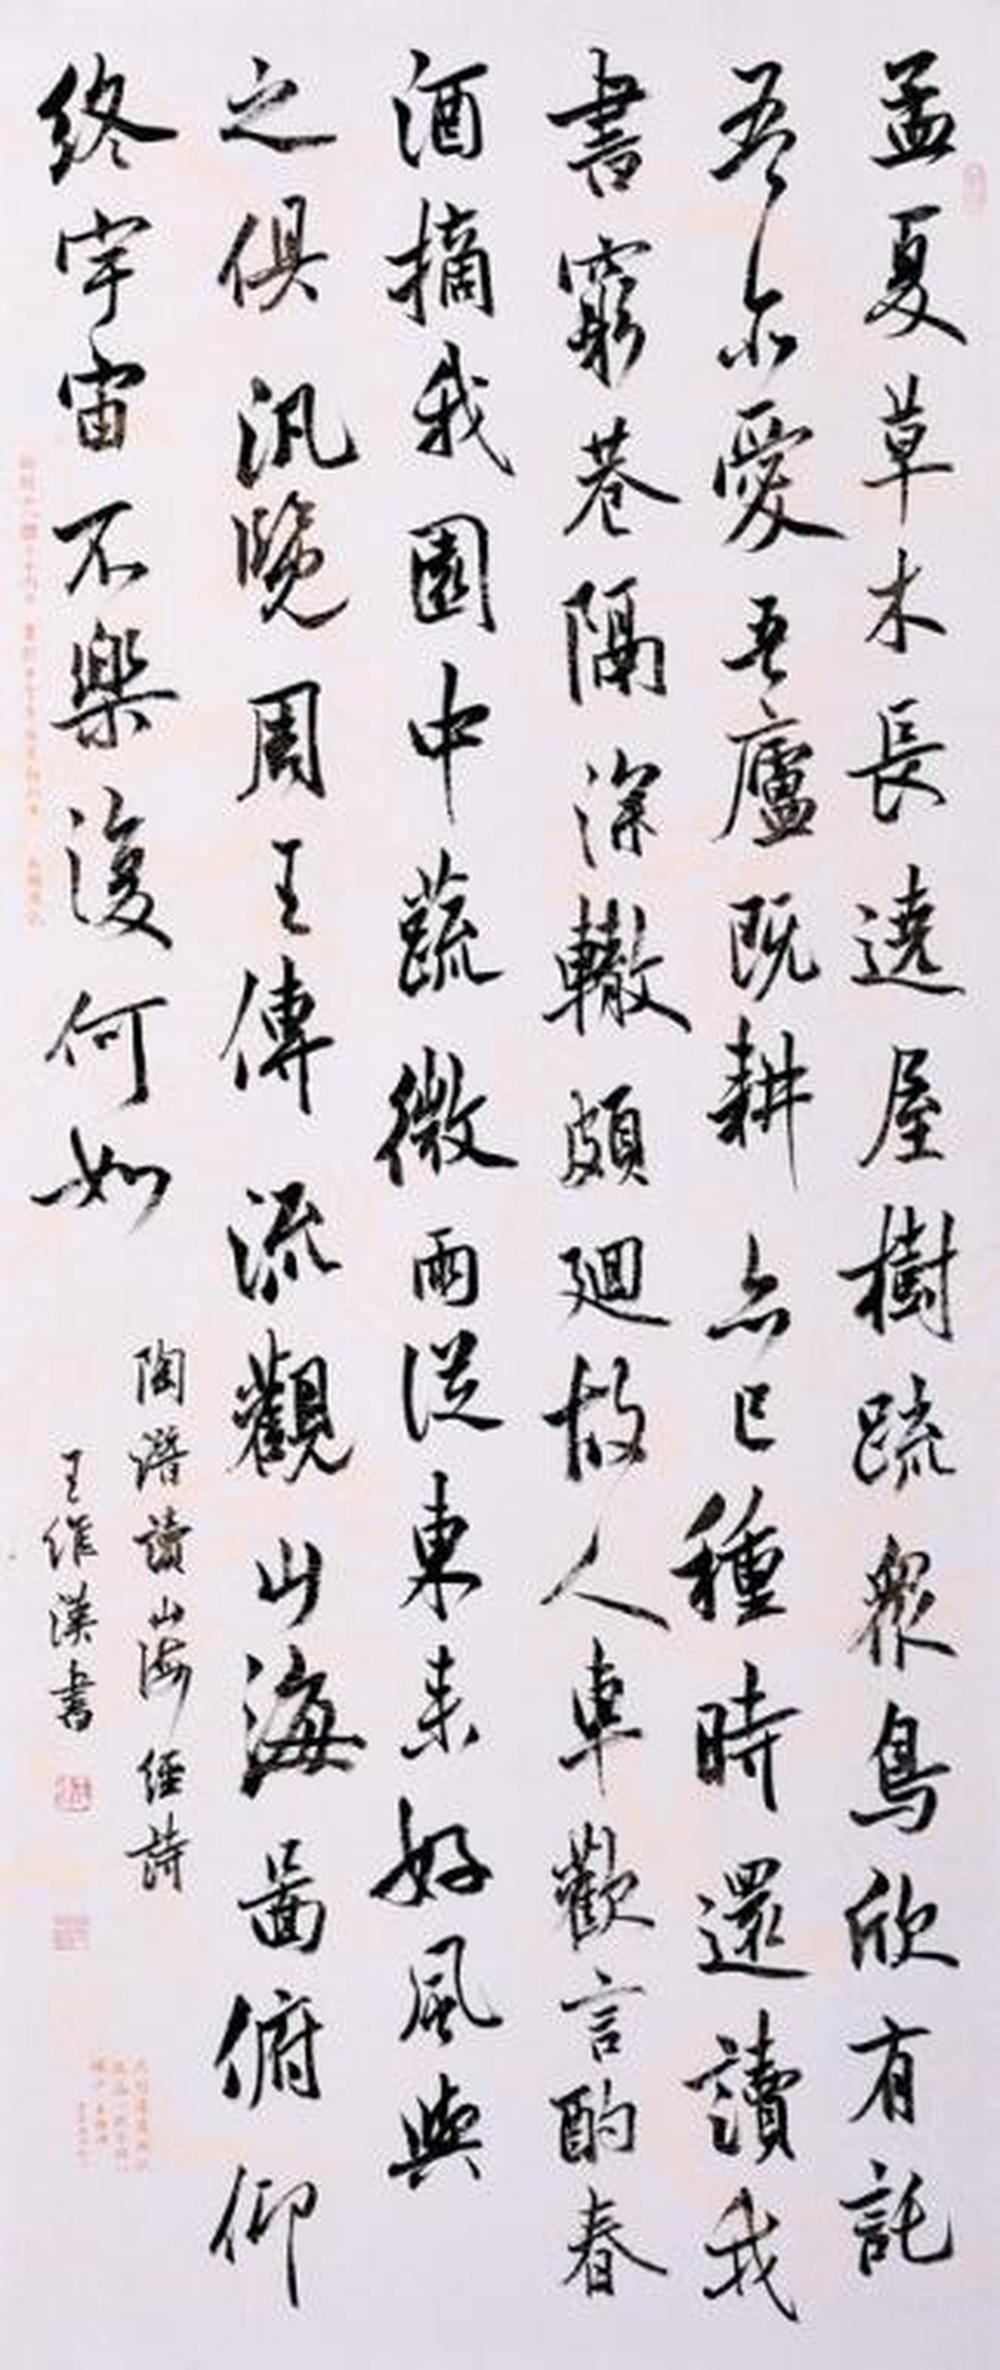 孟夏草木長遶屋樹疏衆鳥欣有託
吾亦愛吾廬既耕亦已種時還讀我
書窮巷隔深轍頗迴故人車歡言酌春
酒摘我園中蔬微雨從東来好風與
之俱汎覽周王傳流觀山海圖俯仰
終宇宙不樂復何如
陶潛讀山海經詩
王維漢書